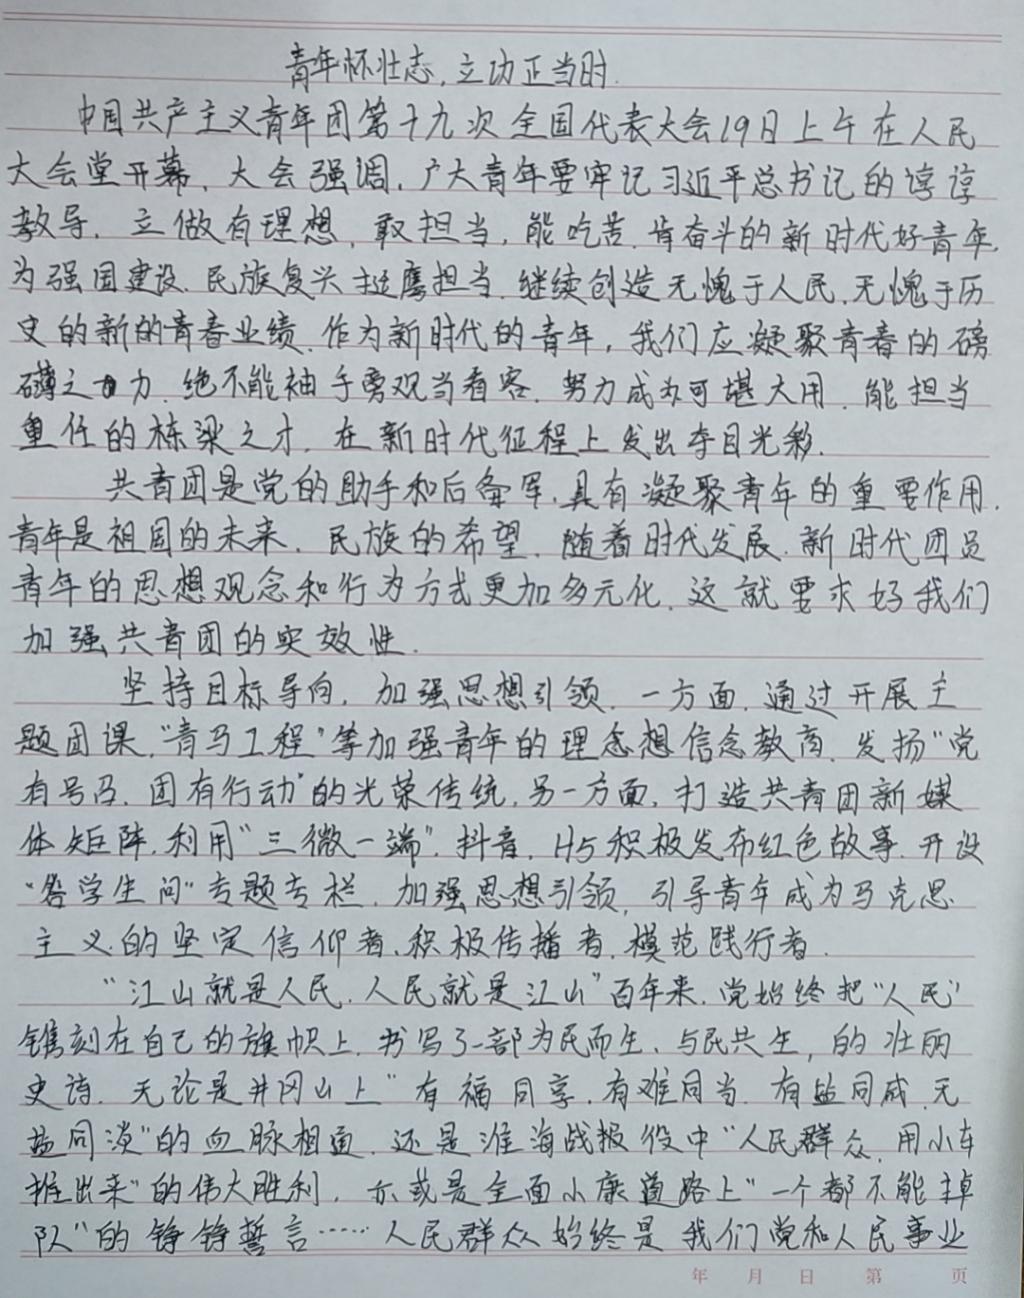 青年怀壮志,立功正当时.
中国共产主义青年团第十九次全国代表大会19日上午在人民
大会堂开幕,大会强调,广大青年要牢记习近平总书记的谆谆
教导,立做有理想,敢担当,能吃苦,肯奋斗的新时代好青年,
为强国建设、民族复兴挺膺担当,继续创造无愧于人民,无愧于历
史的新的青春业绩.作为新时代的青年,我们应凝聚青春的磅
礴之力,绝不能袖手旁观当看客,努力成为可堪大用,能担当
重任的栋梁之才,在新时代征程上发出夺目光彩.
共青团是党的助手和后备军,具有凝聚青年的重要作用.
青年是祖国的未来,民族的希望,随着时代发展,新时代团员
青年的思想观念和行为方式更加多元化,这就要求好我们
加强共青团的实效性.
坚持目标导向,加强思想引领.一方面,通过开展主
题团课,"青马工程"等加强青年的理念想信念教育,发扬"党
有号召,团有行动"的光荣传统,另一方面,打造共青团新媒
体矩阵,利用"三微一端",抖音,H5积极发布红色故事,开设
"答学生问"专题专栏,加强思想引领,引导青年成为马克思
主义的坚定信仰者、积极传播者、模范践行者.
"江山就是人民,人民就是江山"百年来,党始终把"人民"
镌刻在自己的旗帜上,书写了一部为民而生、与民共生,的壮丽
史诗.无论是井冈山上"有福同享,有难同当,有盐同咸,无
盐同淡"的血脉相通,还是淮海战报役中"人民群众,用小车
推出来"的伟大胜利,亦或是全面小康道路上"一个都不能掉
队"的铮铮誓言……人民群众始终是我们党和人民事业
年 月 日 第 页